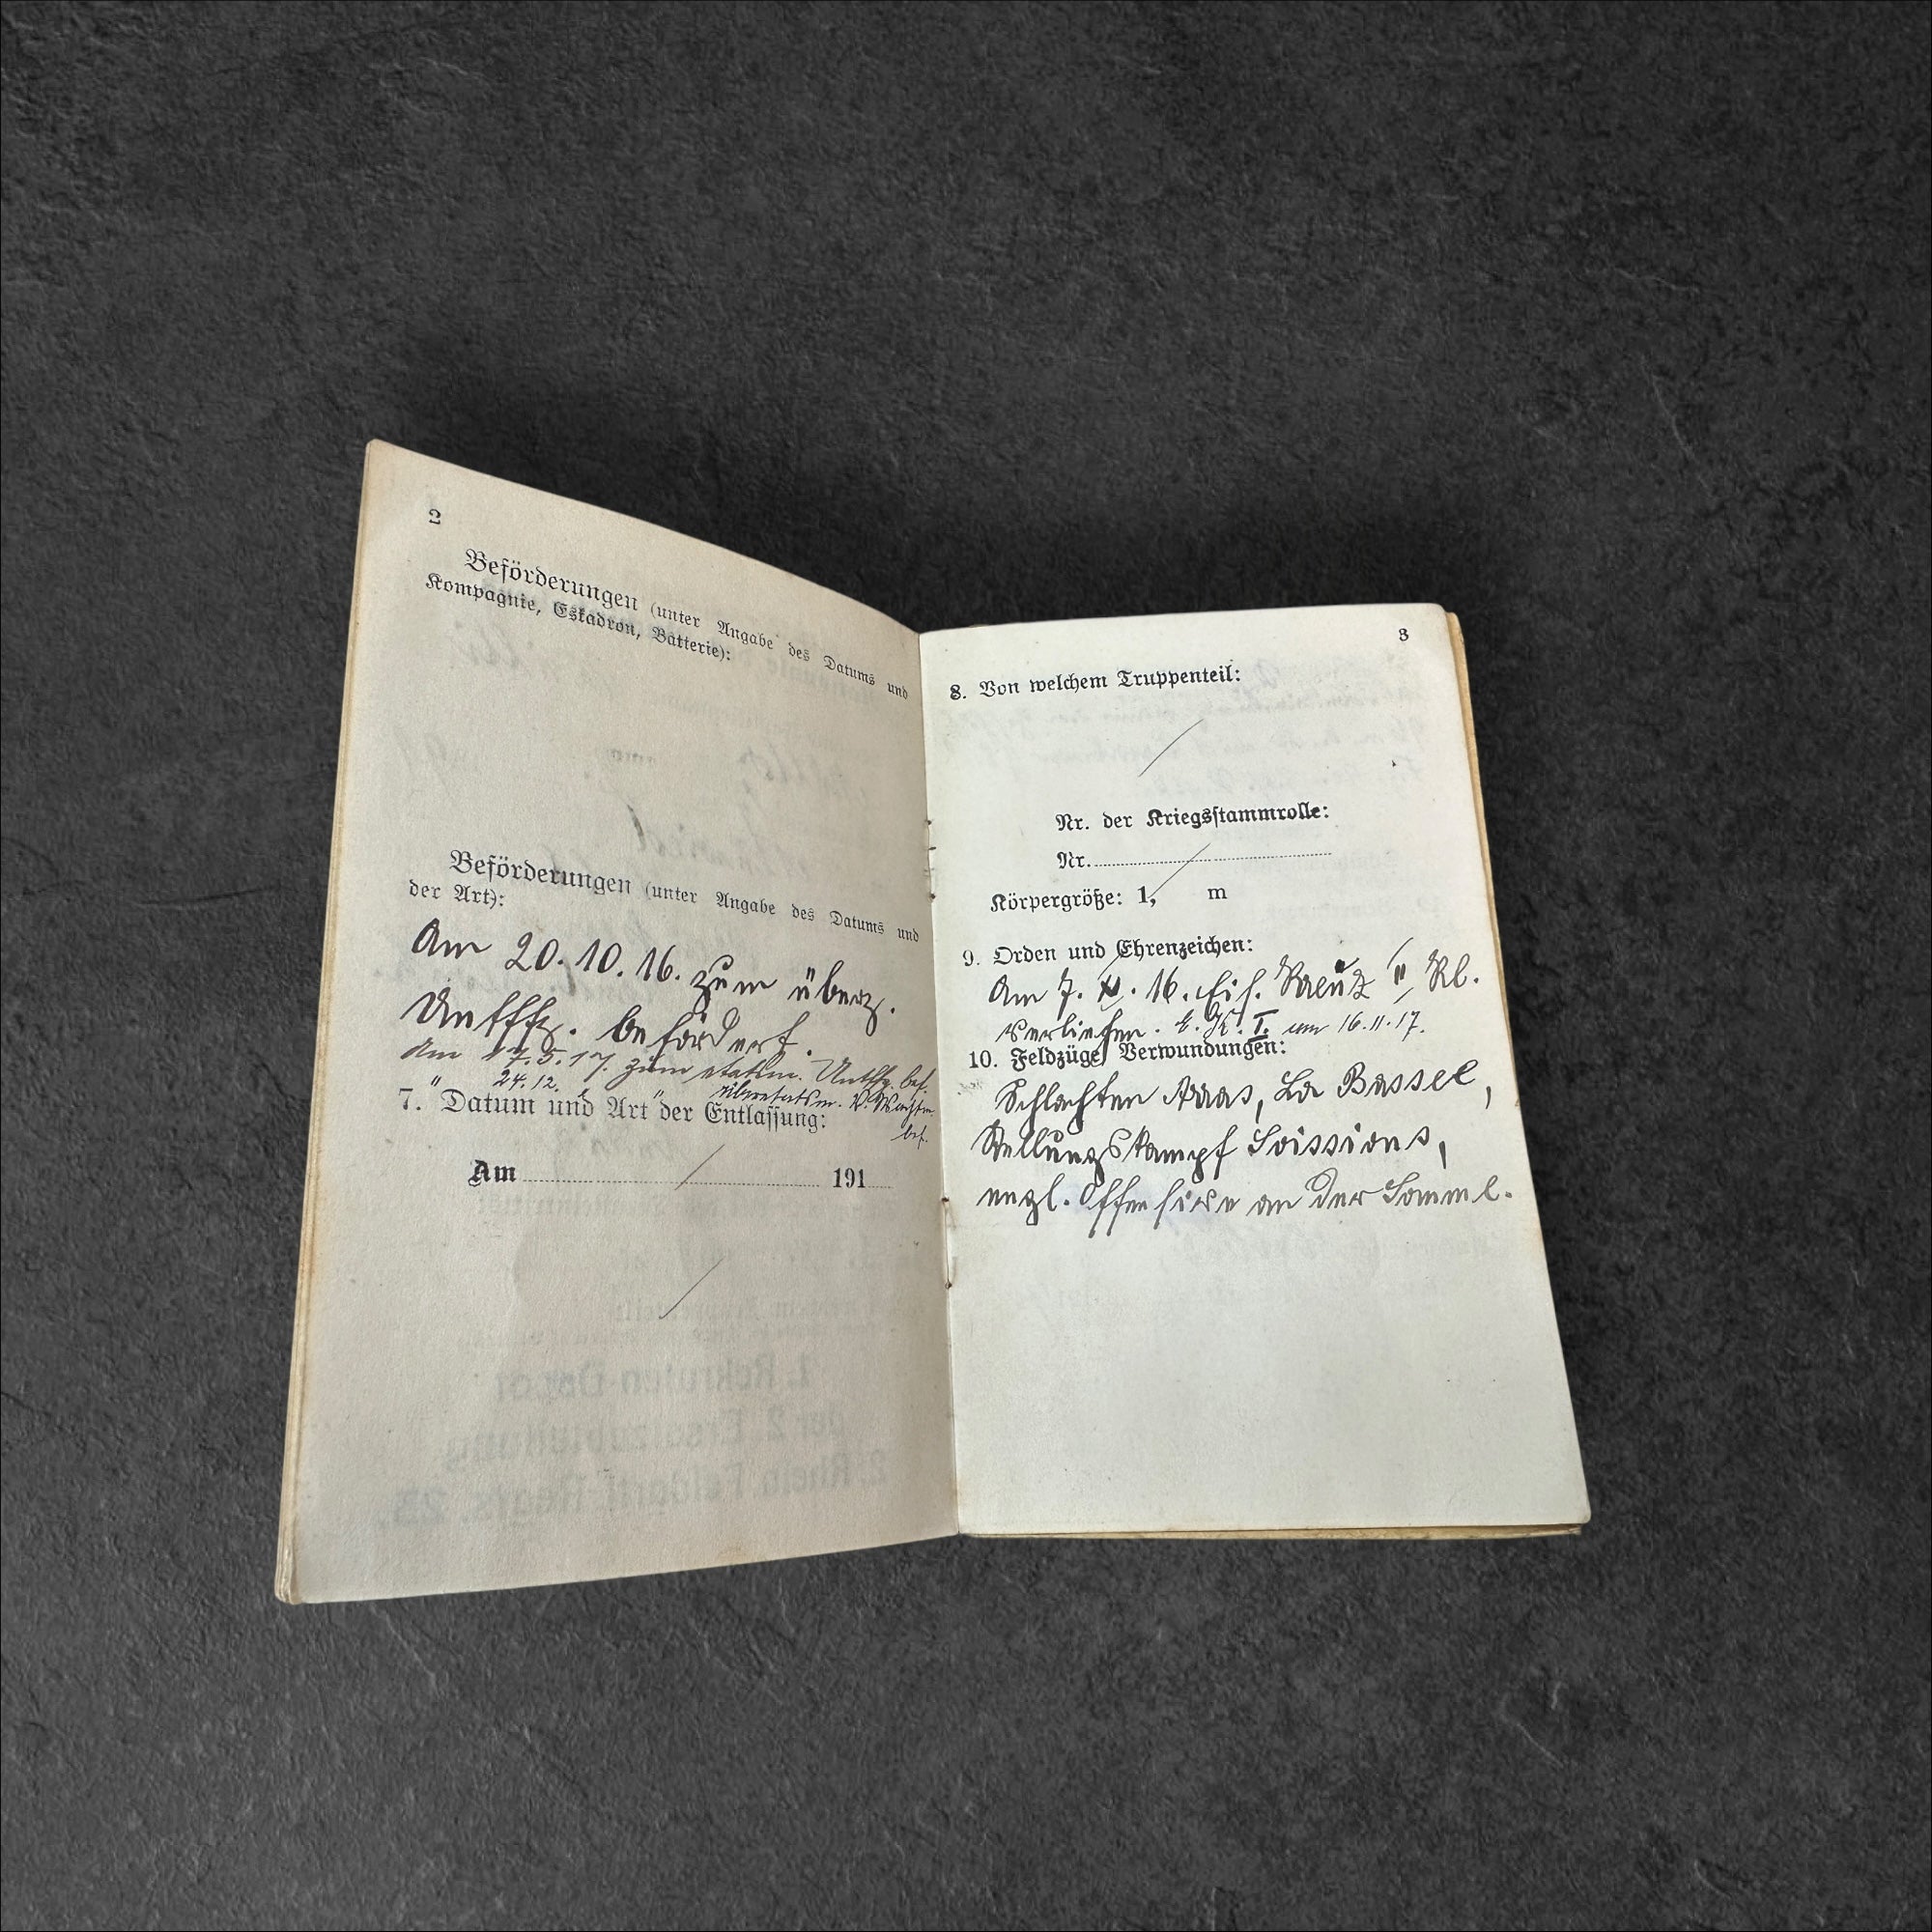 2
Beförderungen (unter Angabe des Datums und
Kompagnie, Eskadron, Batterie):
Beförderungen (unter Angabe des Datums und
der Art):
Am 20. 10. 16. zum überz.
Untffz. befördert.
Am 17.5.17. zum etatsm. Untffz. bef.
" 24. 12. " " überetatsm. V. Wachtm.
bef.
7. Datum und Art der Entlassung:
Am 191
1. Rekruten-Depot
der 2. Ersatzabteilung
2. Rhein. Feldartl. Regts. 23.
3
8. Von welchem Truppenteil:
Nr. der Kriegsstammrolle:
Nr.
Körpergröße: 1, m
9. Orden und Ehrenzeichen:
Am 7. . 16. Eis. Kreuz II Kl.
verliehen. E. K. I. am 16.11.17.
10. Feldzüge, Verwundungen:
Schlachten Arras, La Bassee,
Stellungskampf Soissions,
engl. Offensive an der Somme.